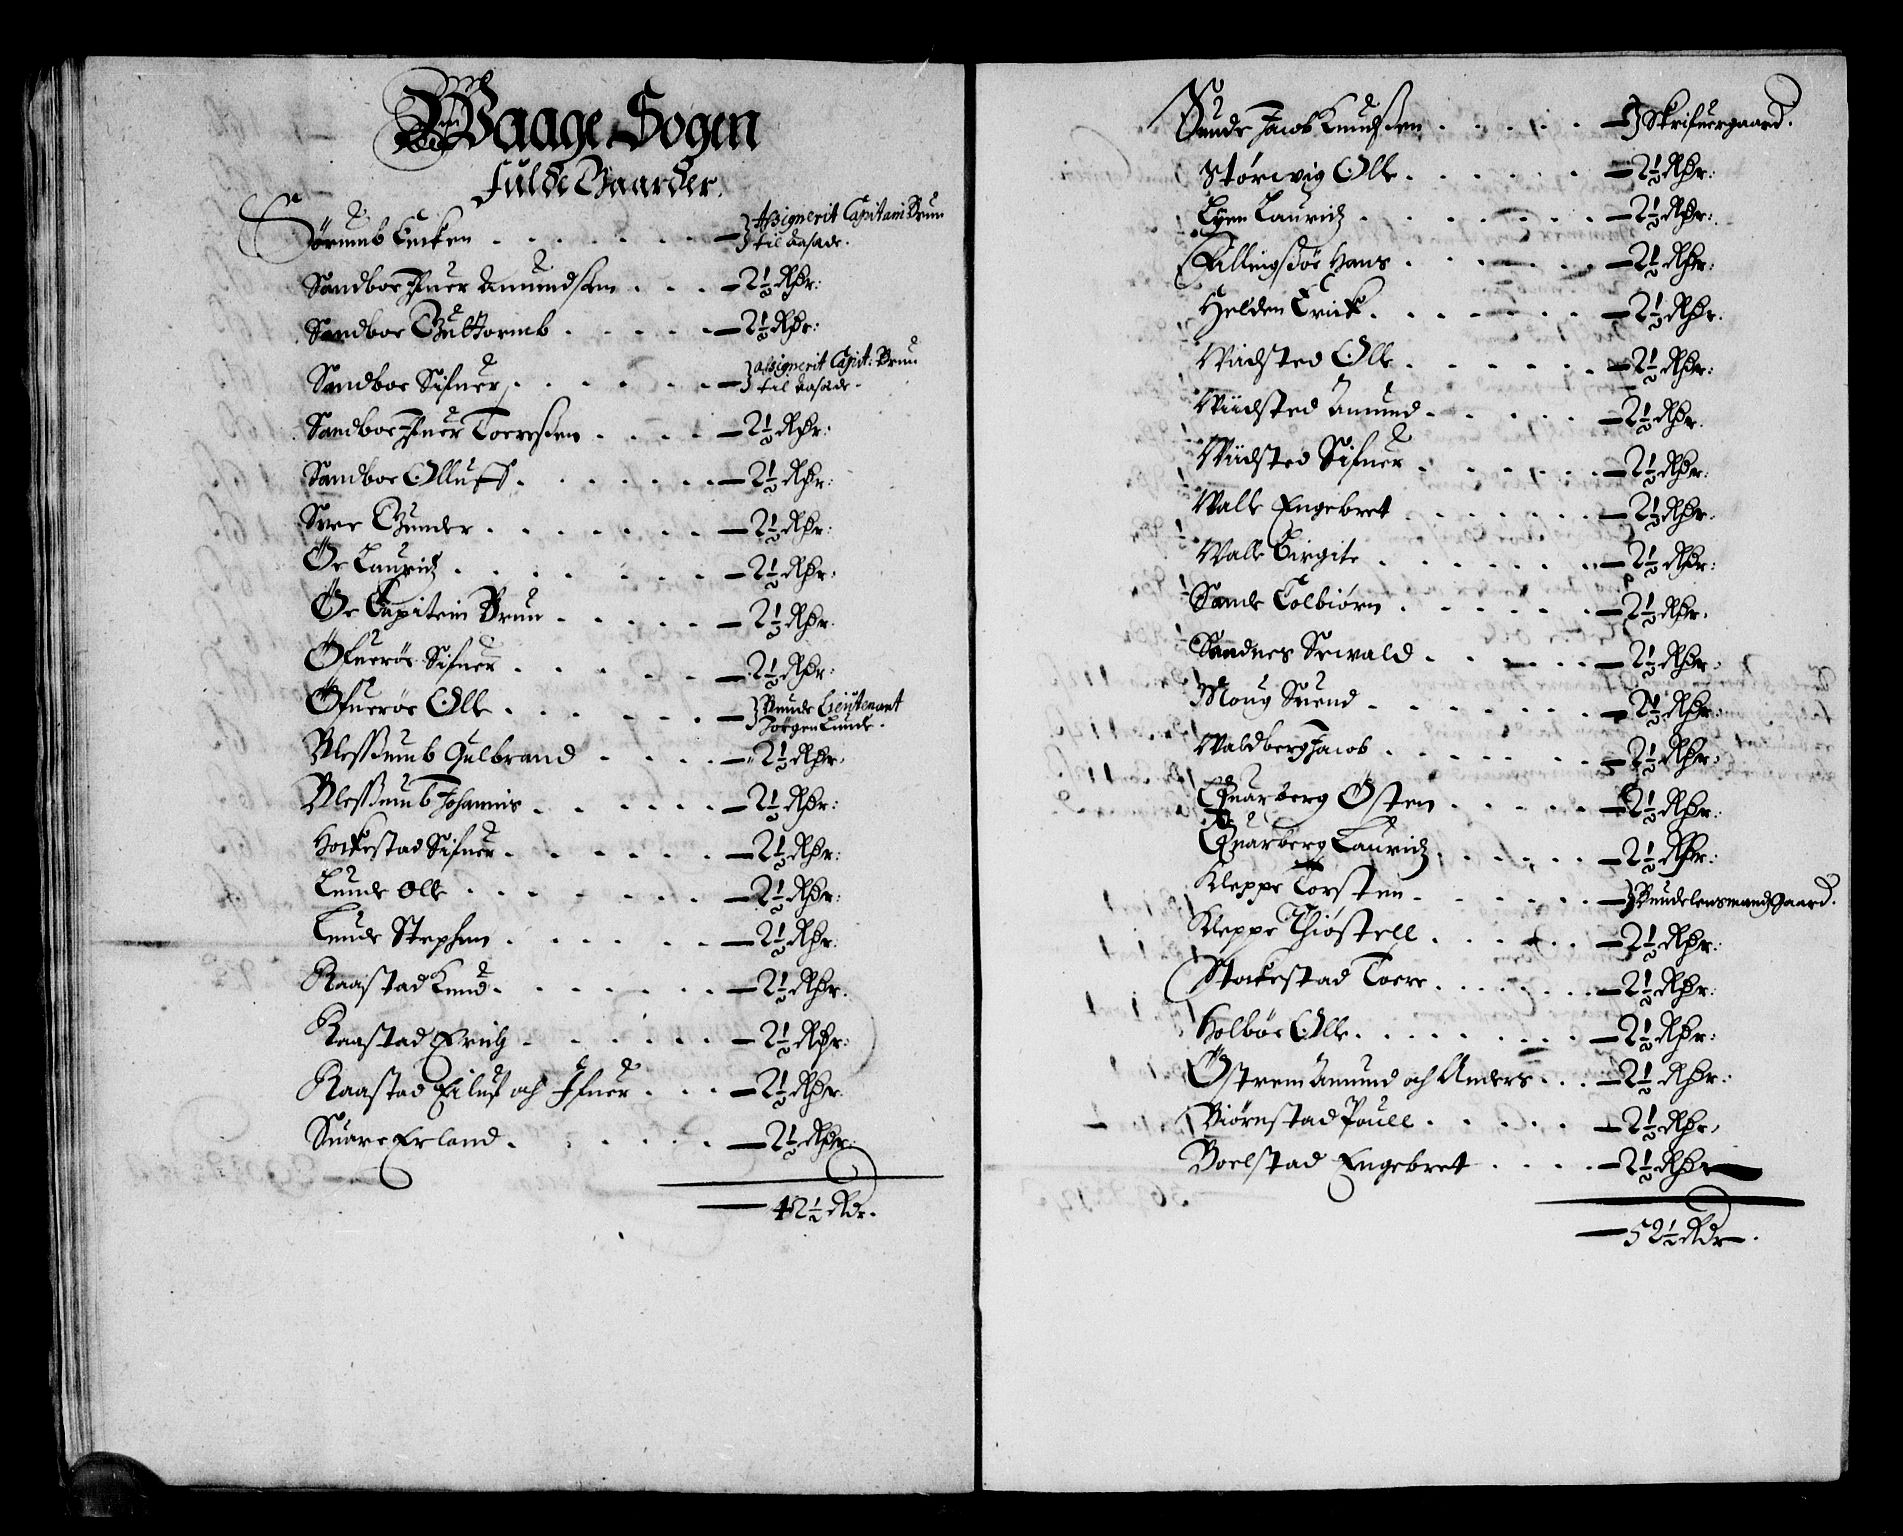 Waage Sogen
Fulde Gaarder.
Sørumb Encken . . . . . . — Assignerit Capitani Brun
til Besade.
Sandboe Ifuer Amundsen . . . — 2½ Rdr:
Sandboe Guttormb . . . . . — 2½ Rdr:
Sandboe Sifuer . . . . . . — Assignerit Capit: Brun
til Besade.
Sandboe Ifuer Toeressen . . . . — 2½ Rdr:
Sandboe Olluff . . . . . . . — 2½ Rdr:
Sree Gunder . . . . . . . — 2½ Rdr:
Öe Lauridz . . . . . . . — 2½ Rdr:
Öe Capitein Brun . . . . . — 2½ Rdr.
Öfueröe Sifuer . . . . . — 2½ Rdr:
Öfueröe Olle . . . . . . — Bunde Lieutenant
Jörgen Lunde.
Blessumb Gulbrand . . . . — 2½ Rdr.
Blessumb Johannis . . . . . . — 2½ Rdr:
Hockestad Sifuer . . . . . . — 2½ Rdr:
Lunde Olle . . . . . . — 2½ Rdr:
Lunde Stephen . . . . . . — 2½ Rdr:
Raastad Knud . . . . . . . — 2½ Rdr.
Raastad Erich . . . . . . . — 2½ Rdr:
Raastad Eiluf och Ifuer . . . — 2½ Rdr.
Suare Erland . . . . . . — 2½ Rdr:
— 42½ Rdr.
Sunde Jacob Knudssen . . . . . — Skrifuergaard.
Störwig Olle . . . . . . — 2½ Rdr:
Lyen Lauridz . . . . . . . — 2½ Rdr:
Fillingsböe Hans . . . . . — 2½ Rdr:
Helden Erick . . . . . . — 2½ Rdr.
Wiidsted Olle . . . . . . . — 2½ Rdr:
Wiidsted Amund . . . . . — 2½ Rdr.
Wiidsted Sifuer . . . . . . — 2½ Rdr:
Walle Engebret . . . . . . — 2½ Rdr:
Walle Birgite . . . . . . . — 2½ Rdr:
Sande Tolbiörn . . . . . . — 2½ Rdr.
Sandnes Sewald . . . . . — 2½ Rdr:
Moug Suend . . . . . . . — 2½ Rdr:
Waldberg Jacob . . . . . . — 2½ Rdr:
Quarberg Östen . . . . . — 2½ Rdr:
Quarberg Lauridz . . . . . — 2½ Rdr:
Kleppe Torsten . . . . . . — Bundelensmandz Gaard.
Kleppe Thiöstell . . . . . — 2½ Rdr:
Stackestad Toere . . . . . . — 2½ Rdr:
Holböe Olle . . . . . . . . — 2½ Rdr:
Östrem Amund och Anders . . . — 2½ Rdr:
Biörnstad Pouell . . . . . — 2½ Rdr,
Boelstad Engebret . . . . — 2½ Rdr
— 52½ Rdr.